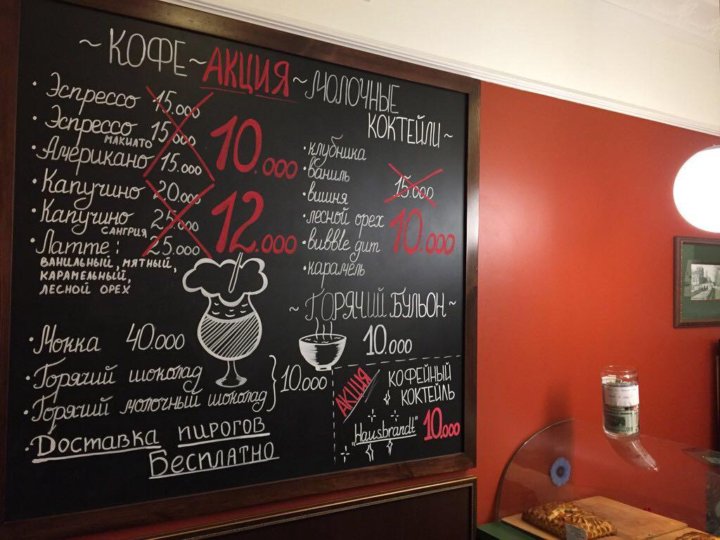 ~КОФЕ~АКЦИЯ~МОЛОЧНЫЕ КОКТЕЙЛИ~
· Эспрессо 15.000
· Эспрессо МАКИАТО 15.000
· Американо 15.000
10.000
· Капучино 20.000
· Капучино САНГРИЯ 25.000
· Латте: 25.000
12.000
ВАНИЛЬНЫЙ, МЯТНЫЙ,
КАРАМЕЛЬНЫЙ,
ЛЕСНОЙ ОРЕХ
· клубника
· ваниль
· вишня
· лесной орех
· bubble gum
· карамель
15.000
10.000
~ГОРЯЧИЙ БУЛЬОН~
10.000
· Мокка 40.000
· Горячий шоколад
· Горячий молочный шоколад
10.000
· Доставка пирогов
Бесплатно
АКЦИЯ
КОФЕЙНЫЙ
КОКТЕЙЛЬ
"Hausbrandt" 10.000